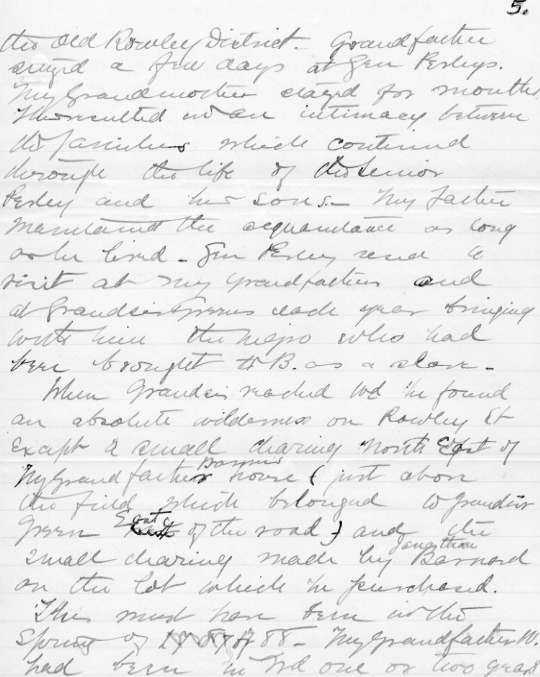 5.
the Old Rowley District. Grandfather
stayed a few days at Gen Perleys.
My Grandmother stayed for months
This resulted in an intimacy between
the families which continued
through the life of the Senior
Perley and his sons— My father
maintained the acquaintance as long
as he lived— Gen Perley a
visit at my Grandfathers and
at Grandsir Greens each year bringing
with him the negro who had
been brought to B. as a slave—
When Grandsir reached Wd he found
an absolute wilderness on Rowley St
Except a small clearing North East of
My Grandfather Barnard house ( just above
the field which belonged to Grandsir
Green East of the road ) and the
small clearing made by Jonathan Barnard
on the lot which he purchased.
This must have been in the
Spring of 1787 or 88— My Grandfather W.
had been in Wd one or two years